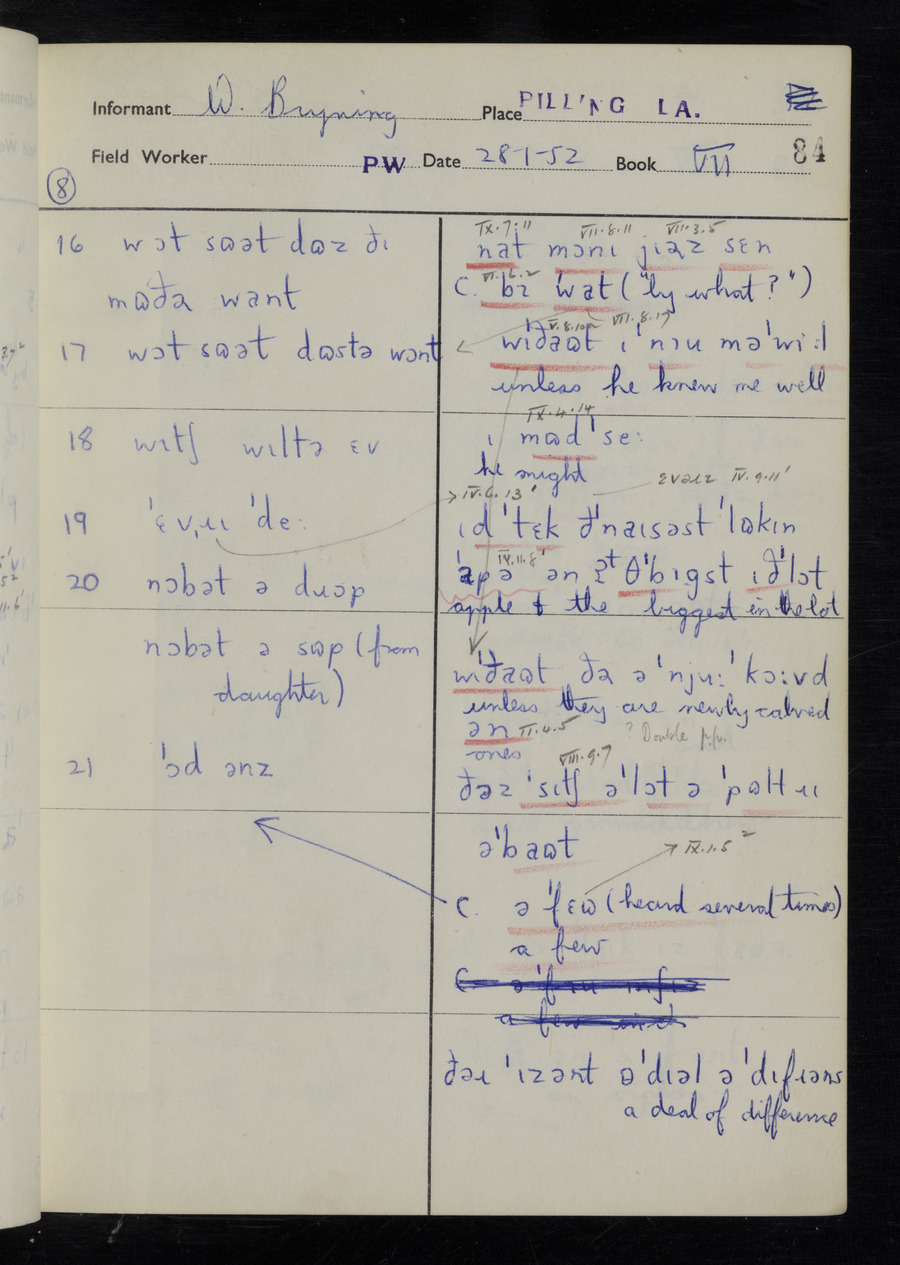 Informant W. Bryning Place PILL'NG LA.
Field Worker PW Date 28-1-52 Book VII 84
8
16 wɔt sɷət dɷz ðɩ
mɷðə want
17 wɔt sɷət dɷstə wɔnt
18 wɩtʃ wɩltə ɛv
19 'ɛv,ɹɩ 'de:
20 nɔbət ə dɹɔp
nɔbət ə sɷp (from
daughter)
21 'ɔd ənz
IX.7.11 VII.8.11 VII.3.5
nat mɔnɩ jɩəz sɛn
C. bɪ 'wat ("by what?")
V.8.10a VII.8.17
wɩðaɷt ɩ 'nɪu mə'wi:l
unless he knew me well
IX.4.14
ɩ mɷd 'se:
he might
IV.6.13' ɛvəɹɪ IV.9.11'
ɩd 'tɛk ð'naɩsəst 'lɷkɩn
'apə ən t θ'bɪgst ɩ ð'lɔt
apple & the biggest in the lot
wɩ'ðaɷt ðə ə 'nju:'kɔ:vd
unless they are newly calved
ən II.4.5 ? Double p.p.
ones VIII.9.7
ðəz 'sɩtʃ ə'lɔt ə 'pɷltɹɩ
ə'baɷt
IX.1.5²
C. ə 'fɛɷ (heard several times)
a few
ðəɩ 'ɩzənt ə'dɩəl ə 'dɩfɹəns
a deal of difference